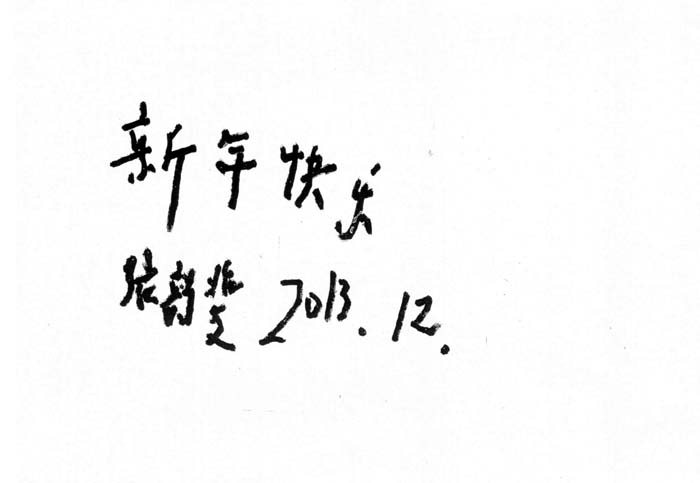 新年快乐
张 2013.12.